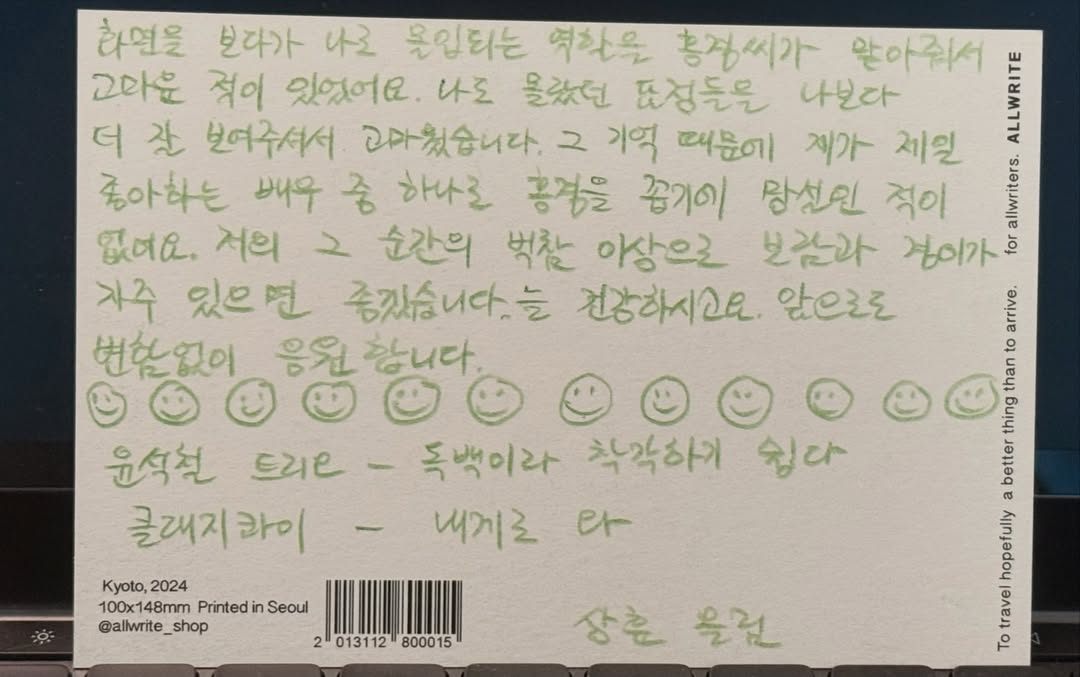 화면을 보다가 나로 몰입되는 역할을 흥경씨가 맡아줘서
고마운 적이 있었어요. 나도 몰랐던 표정들을 나보다
더 잘 보여주셔서 고마웠습니다. 그 기억 때문에 제가 제일
좋아하는 배우 중 하나로 홍경을 꼽기에 망설인 적이
없어요. 저의 그 순간의 벅참 이상으로 보람과 경이가
자주 있으면 좋겠습니다. 늘 건강하시고요. 앞으로도
변함없이 응원합니다.
윤석철 트리오 – 독백이라 착각하기 쉽다
클래지콰이 – 내게로 와
Kyoto, 2024
100x148mm Printed in Seoul
@allwrite_shop
2 013112 800015
상훈 올림
To travel hopefully a better thing than to arrive. for allwriters. ALLWRITE